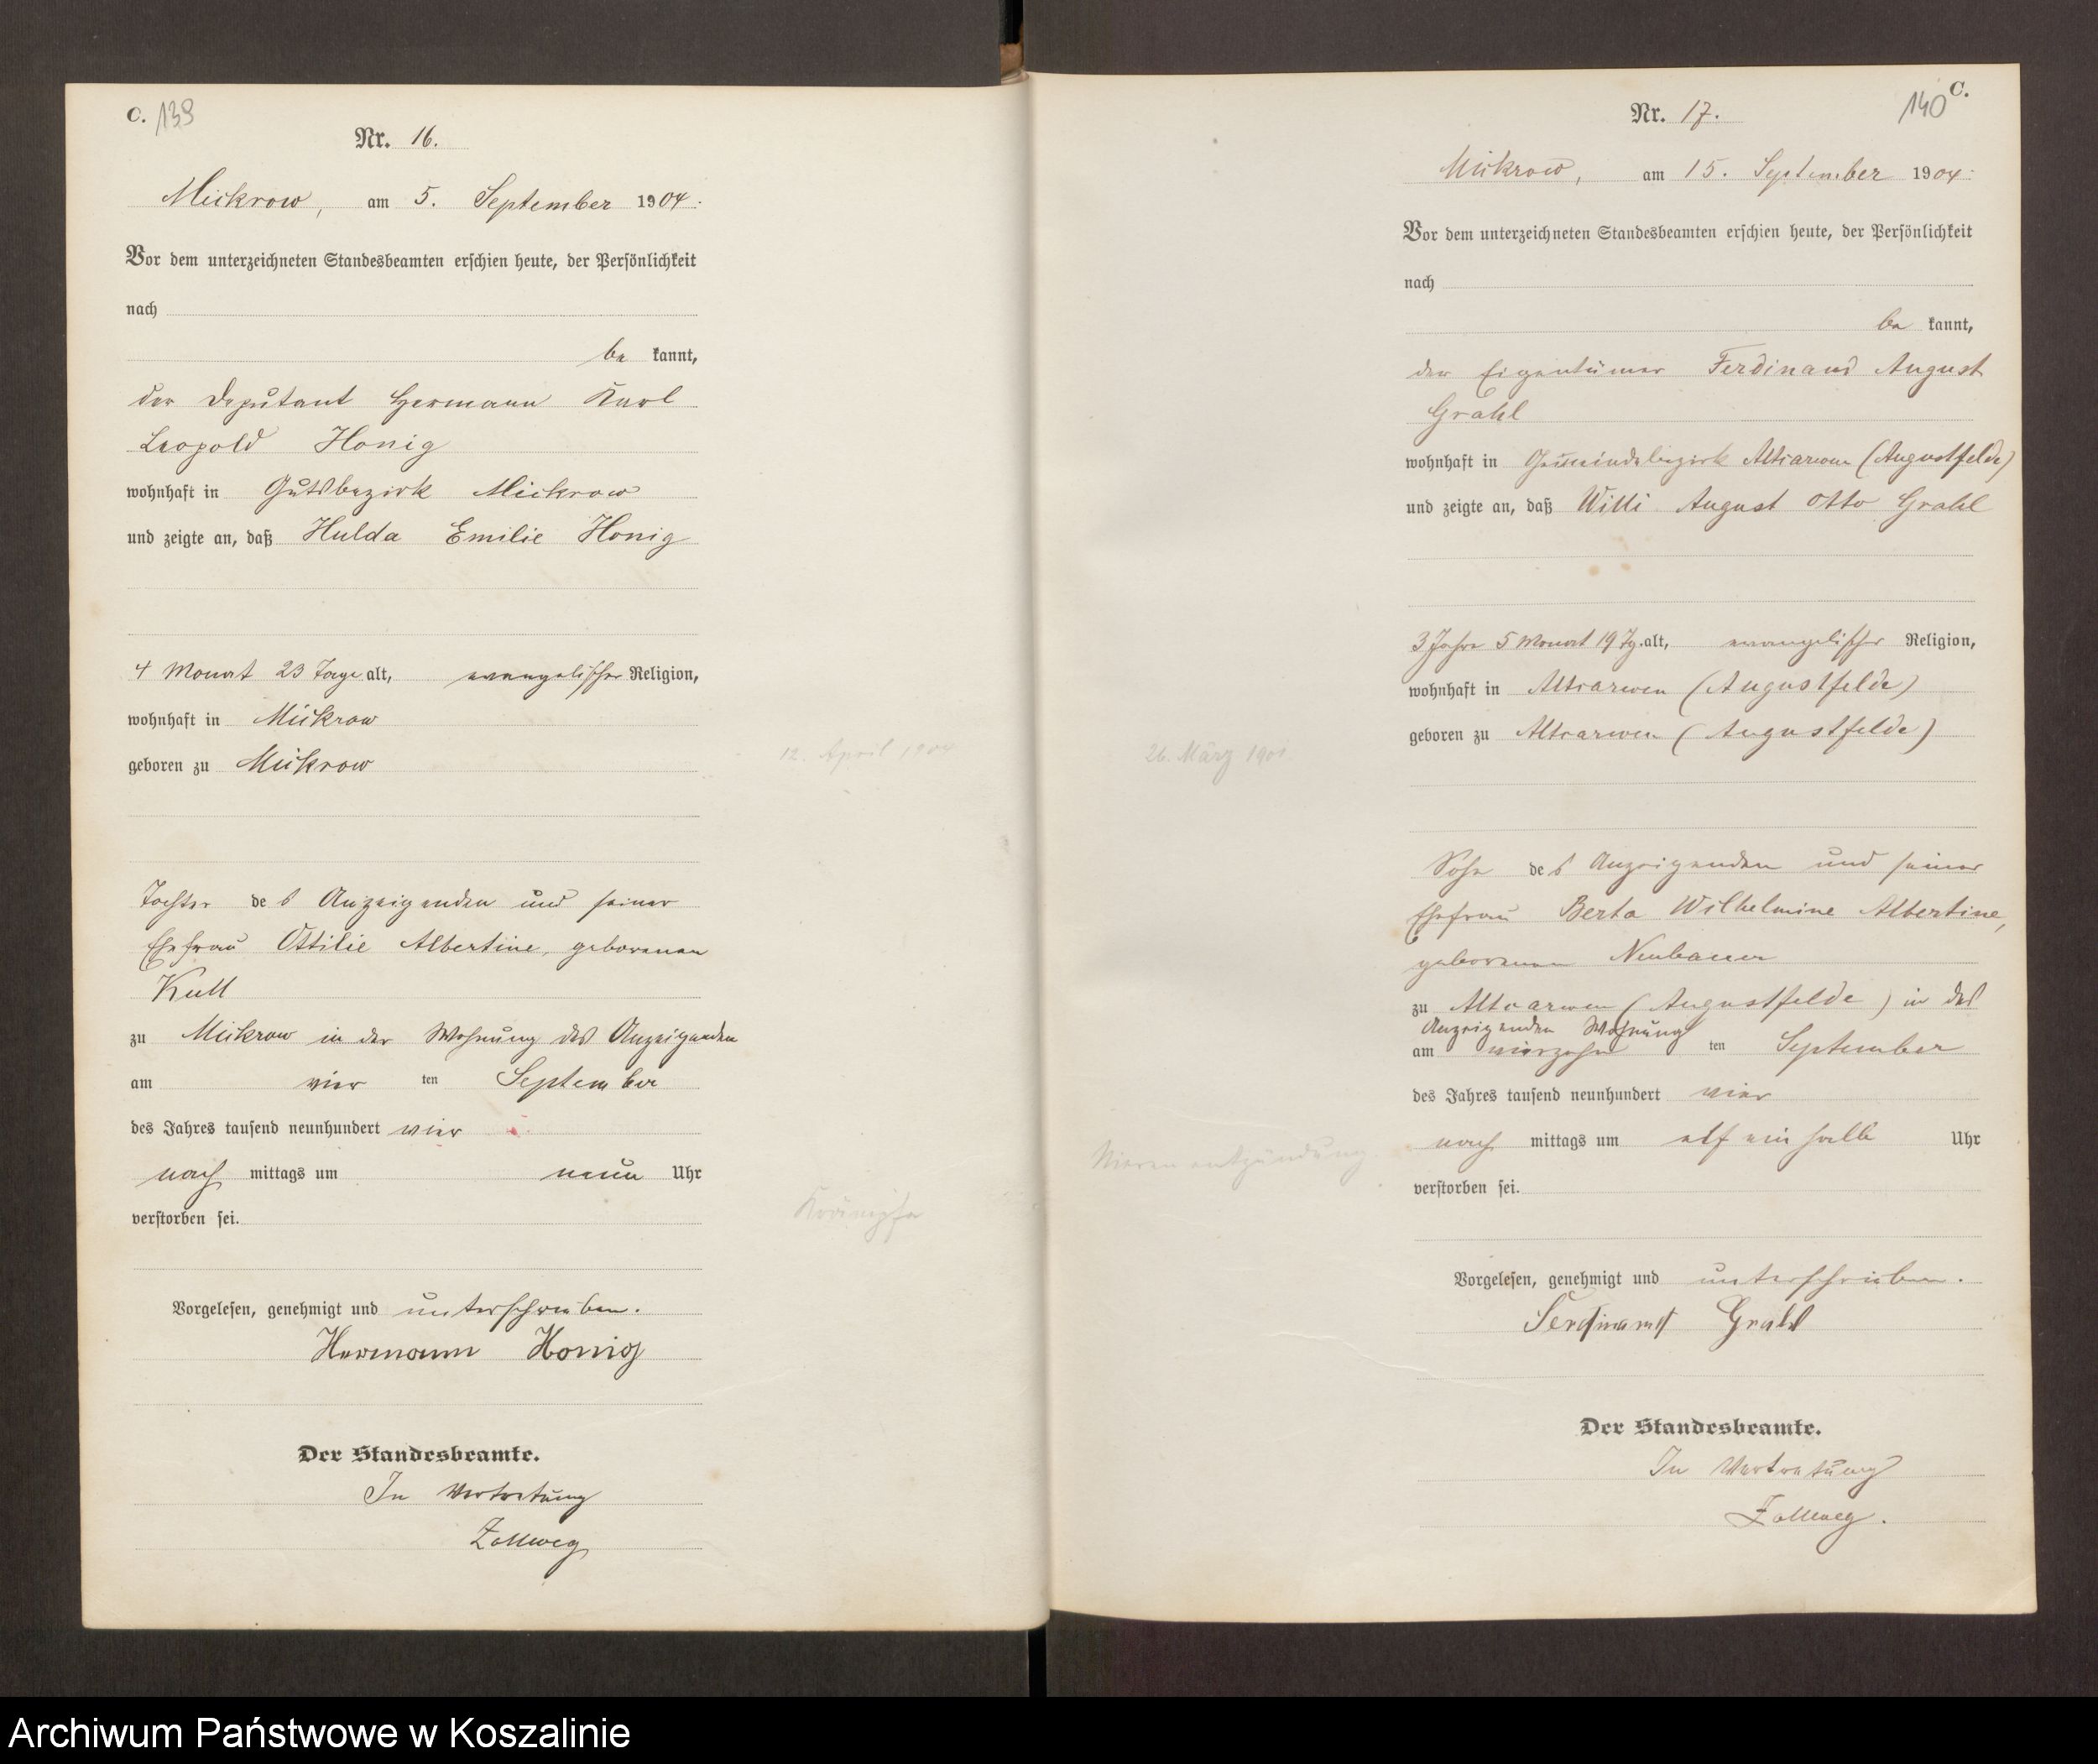 C. 139
Nr. 16.
Mickrow, am 5. September 1904.
Vor dem unterzeichneten Standesbeamten erschien heute, der Persönlichkeit
nach
be kannt,
der Deputant Hermann Karl
Leopold Honig
wohnhaft in Gutsbezirk Mickrow
und zeigte an, daß Hulda Emilie Honig
4 Monat 23 Tage alt, evangelischer Religion,
wohnhaft in Mickrow
geboren zu Mickrow
12. April 1904
Tochter des Anzeigenden und seiner
Ehefrau Ottilie Albertine, geborenen
Kull
zu Mickrow in der Wohnung des Anzeigenden
am vier ten September
des Jahres tausend neunhundert vier
nach mittags um neun Uhr
verstorben sei.
Krämpfe
Vorgelesen, genehmigt und unterschrieben.
Hermann Honig
Der Standesbeamte.
In Vertretung
Zollweg
140 C.
Nr. 17.
Mickrow, am 15. September 1904.
Vor dem unterzeichneten Standesbeamten erschien heute, der Persönlichkeit
nach
be kannt,
der Eigentümer Ferdinand August
Grahl
wohnhaft in Gemeindebezirk Altcarwen (Augustfelde)
und zeigte an, daß Willi August Otto Grahl
3 Jahre 5 Monat 19 Tg. alt, evangelischer Religion,
wohnhaft in Altcarwen (Augustfelde)
geboren zu Altcarwen (Augustfelde)
26. März 1901
Sohn des Anzeigenden und seiner
Ehefrau Berta Wilhelmine Albertine,
geborenen Neubauer
zu Altcarwen (Augustfelde) in des
Anzeigenden Wohnung
am vierzehn ten September
des Jahres tausend neunhundert vier
nach mittags um elf ein halb Uhr
verstorben sei.
Nierenentzündung
Vorgelesen, genehmigt und unterschrieben.
Ferdinand Grahl
Der Standesbeamte.
In Vertretung
Zollweg.
Archiwum Państwowe w Koszalinie